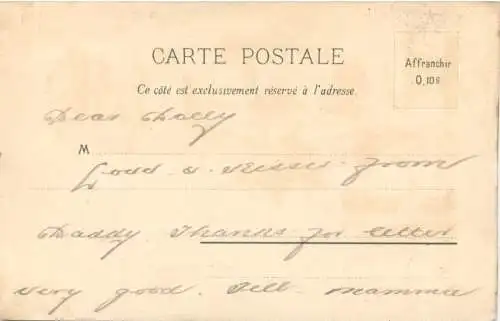 CARTE POSTALE
Ce côté est exclusivement réservé à l'adresse.
Affranchir
0,10c
Dear
M
from
Daddy. Thanks for letter
very good. Tell mamma